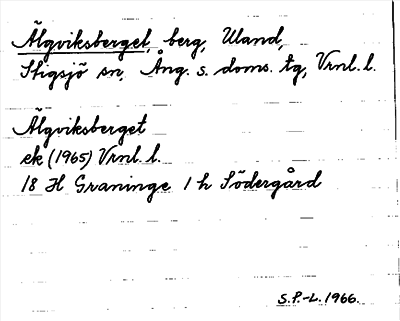 Älgviksberget, berg, Uland,
Stigsjö sn, Ång. s. doms. tg, Vrnl. l.
Älgviksberget
ek (1965) Vrnl. l.
18 H Graninge 1 h Södergård
S.P.-L. 1966.